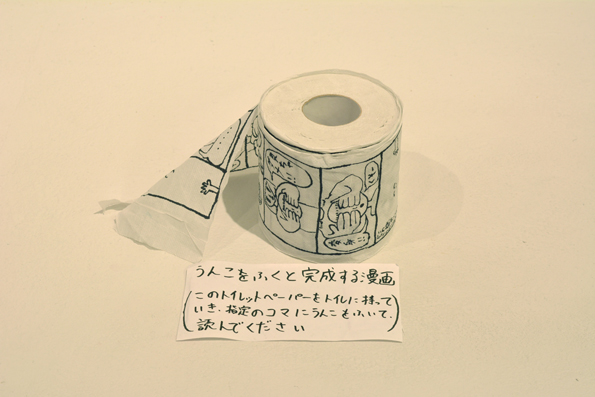 うんこをふくと完成する漫画
(このトイレットペーパーをトイレに持って
いき、指定のコマにうんこをふいて、
読んでください)